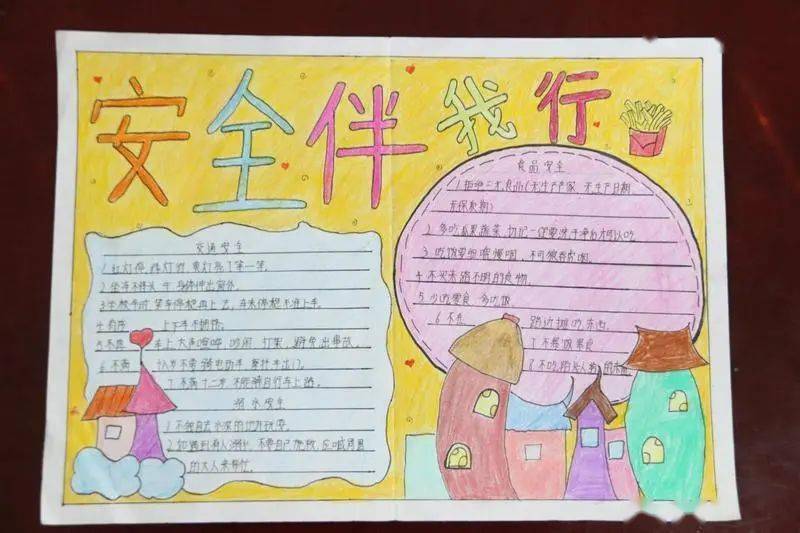 安全伴我行
交通安全
1 红灯停 绿灯行 黄灯亮了等一等。
2 坐车不得头 手 身体伸出窗外。
上下车不拥挤。
5 不
车上大声喧哗 吵闹 打架，避免出事故。
6 不满
十六岁不要骑电动车 摩托车出门。
7 不满十二岁 不能骑自行车上路。
溺水安全
1 不独自去水深的地方玩耍。
2 如遇到有人溺水，不要自己施救，应喊周围
的大人来帮忙。
食品安全
1 拒绝三无食品(无生产厂家，无生产日期，
无保质期)
2 多吃瓜果蔬菜，切记一定要洗干净后才可以吃
3 吃饭要细嚼慢咽，不可狼吞虎咽。
4 不买来路不明的食物。
5 少吃零食 多吃饭
6 不
路边摊的东西。
7 不
8 不吃陌生人给的东西